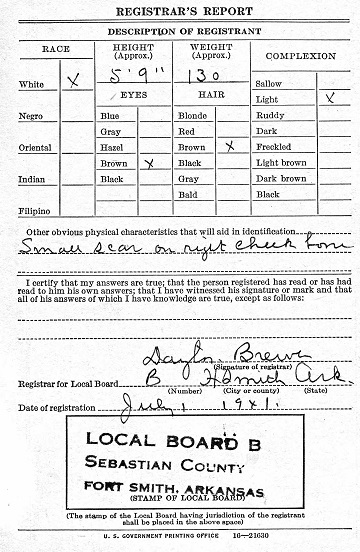 REGISTRAR'S REPORT
DESCRIPTION OF REGISTRANT
RACE HEIGHT (Approx.) WEIGHT (Approx.) COMPLEXION
White X 5' 9" 130 Sallow
EYES HAIR Light X
Negro Blue Blonde Ruddy
Gray Red Dark
Oriental Hazel Brown X Freckled
Brown X Black Light brown
Indian Black Gray Dark brown
Bald Black
Filipino
Other obvious physical characteristics that will aid in identification
Small scar on right cheek bone
I certify that my answers are true; that the person registered has read or has had
read to him his own answers; that I have witnessed his signature or mark and that
all of his answers of which I have knowledge are true, except as follows:
(Signature of registrar)
Registrar for Local Board B Ft Smith Ark.
(Number) (City or county) (State)
Date of registration July 1, 1941.
LOCAL BOARD B
SEBASTIAN COUNTY
FORT SMITH, ARKANSAS
(STAMP OF LOCAL BOARD)
(The stamp of the Local Board having jurisdiction of the registrant
shall be placed in the above space)
U. S. GOVERNMENT PRINTING OFFICE 16—21630